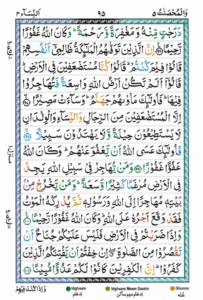 النسآء ٤
٩٥
والمحصنت ٥
دَرَجٰتٍ مِّنْهُ وَمَغْفِرَةً وَّرَحْمَةً ؕ وَكَانَ اللّٰهُ غَفُوْرًا
رَّحِيْمًا اِنَّ الَّذِيْنَ تَوَفّٰىهُمُ الْمَلٰٓئِكَةُ ظَالِمِيْۤ اَنْفُسِهِمْ
قَالُوْا فِيْمَ كُنْتُمْ ؕ قَالُوْا كُنَّا مُسْتَضْعَفِيْنَ فِي الْاَرْضِ ؕ
قَالُوْۤا اَلَمْ تَكُنْ اَرْضُ اللّٰهِ وَاسِعَةً فَتُهَاجِرُوْا فِيْهَا ؕ
فَاُولٰٓئِكَ مَاْوٰىهُمْ جَهَنَّمُ ؕ وَسَآءَتْ مَصِيْرًا
اِلَّا الْمُسْتَضْعَفِيْنَ مِنَ الرِّجَالِ وَالنِّسَآءِ وَالْوِلْدَانِ
لَا يَسْتَطِيْعُوْنَ حِيْلَةً وَّلَا يَهْتَدُوْنَ سَبِيْلًا
فَاُولٰٓئِكَ عَسَى اللّٰهُ اَنْ يَّعْفُوَ عَنْهُمْ ؕ وَكَانَ اللّٰهُ
عَفُوًّا غَفُوْرًا وَمَنْ يُّهَاجِرْ فِيْ سَبِيْلِ اللّٰهِ يَجِدْ
فِي الْاَرْضِ مُرٰغَمًا كَثِيْرًا وَّسَعَةً ؕ وَمَنْ يَّخْرُجْ مِنْۢ
بَيْتِهٖ مُهَاجِرًا اِلَى اللّٰهِ وَرَسُوْلِهٖ ثُمَّ يُدْرِكْهُ الْمَوْتُ
فَقَدْ وَقَعَ اَجْرُهٗ عَلَى اللّٰهِ ؕ وَكَانَ اللّٰهُ غَفُوْرًا رَّحِيْمًا
وَاِذَا ضَرَبْتُمْ فِي الْاَرْضِ فَلَيْسَ عَلَيْكُمْ جُنَاحٌ اَنْ
تَقْصُرُوْا مِنَ الصَّلٰوةِ ۖ اِنْ خِفْتُمْ اَنْ يَّفْتِنَكُمُ الَّذِيْنَ
كَفَرُوْا ؕ اِنَّ الْكٰفِرِيْنَ كَانُوْا لَكُمْ عَدُوًّا مُّبِيْنًا